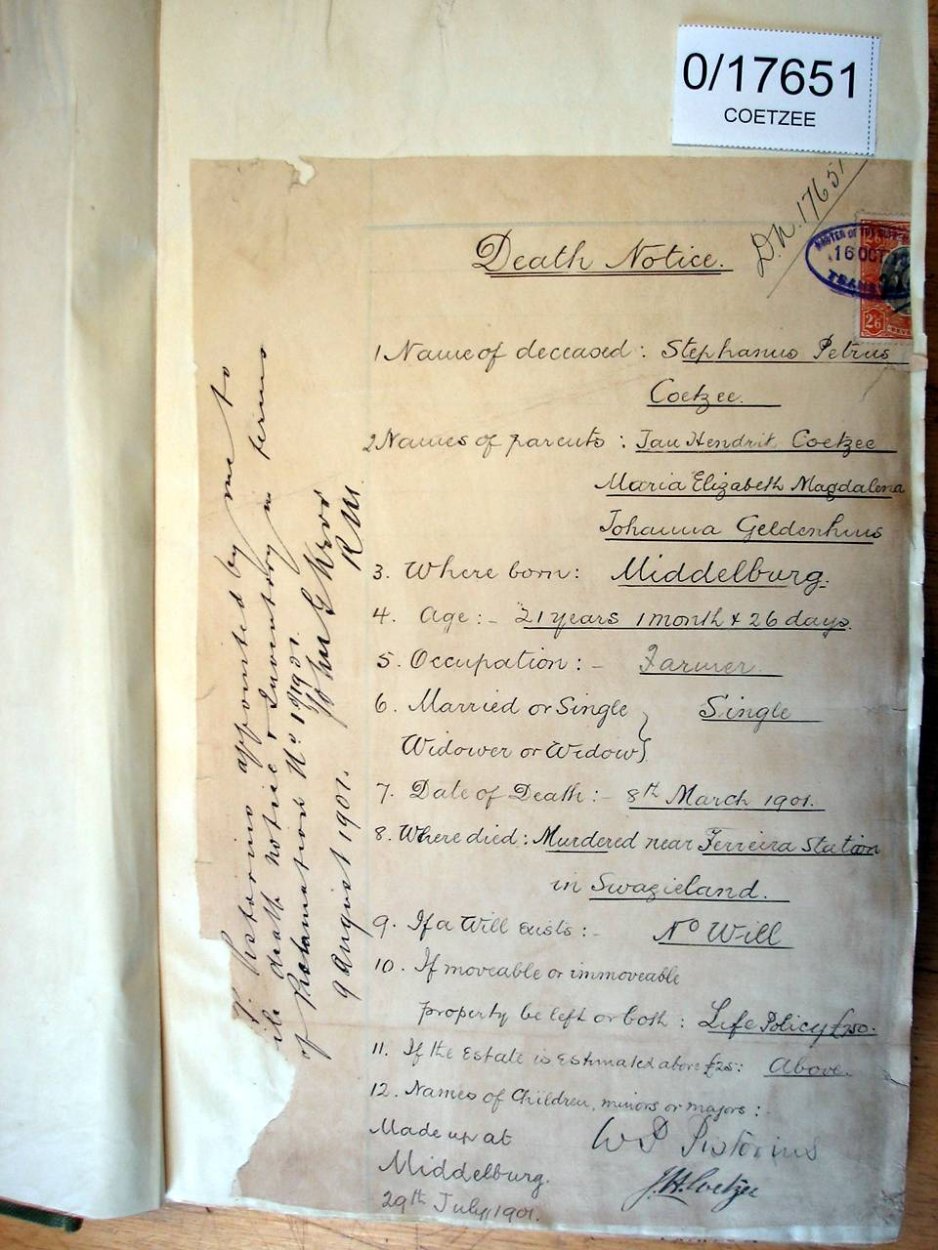 0/17651
COETZEE
D.N. 17651
Death Notice.
16 OCT
2/6
1 Name of deceased: Stephanus Petrus
Coetzee.
2 Names of parents: Jan Hendrik Coetzee
Maria Elizabeth Magdalena
Johanna Geldenhuis
3. Where born: Middelburg.
4. Age:- 21 years 1 month & 26 days.
5. Occupation:- Farmer.
6. Married or Single } Single
Widower or Widow }
7. Date of Death:- 8th March 1901.
8. Where died: Murdered near Ferreira Station
in Swazieland.
9. If a Will exists:- No Will
10. If moveable or immoveable
property be left or both: Life Policy £250.
11. If the Estate is estimated above £25: Above.
12. Names of Children, minors or majors:
Made up at
Middelburg.
29th July, 1901.
W D Pistorius
J.H. Coetzee
Pistorius appointed by me to
death notice & Inventory in terms
of Proclamation No 1901.
9 August 1901.
R M.